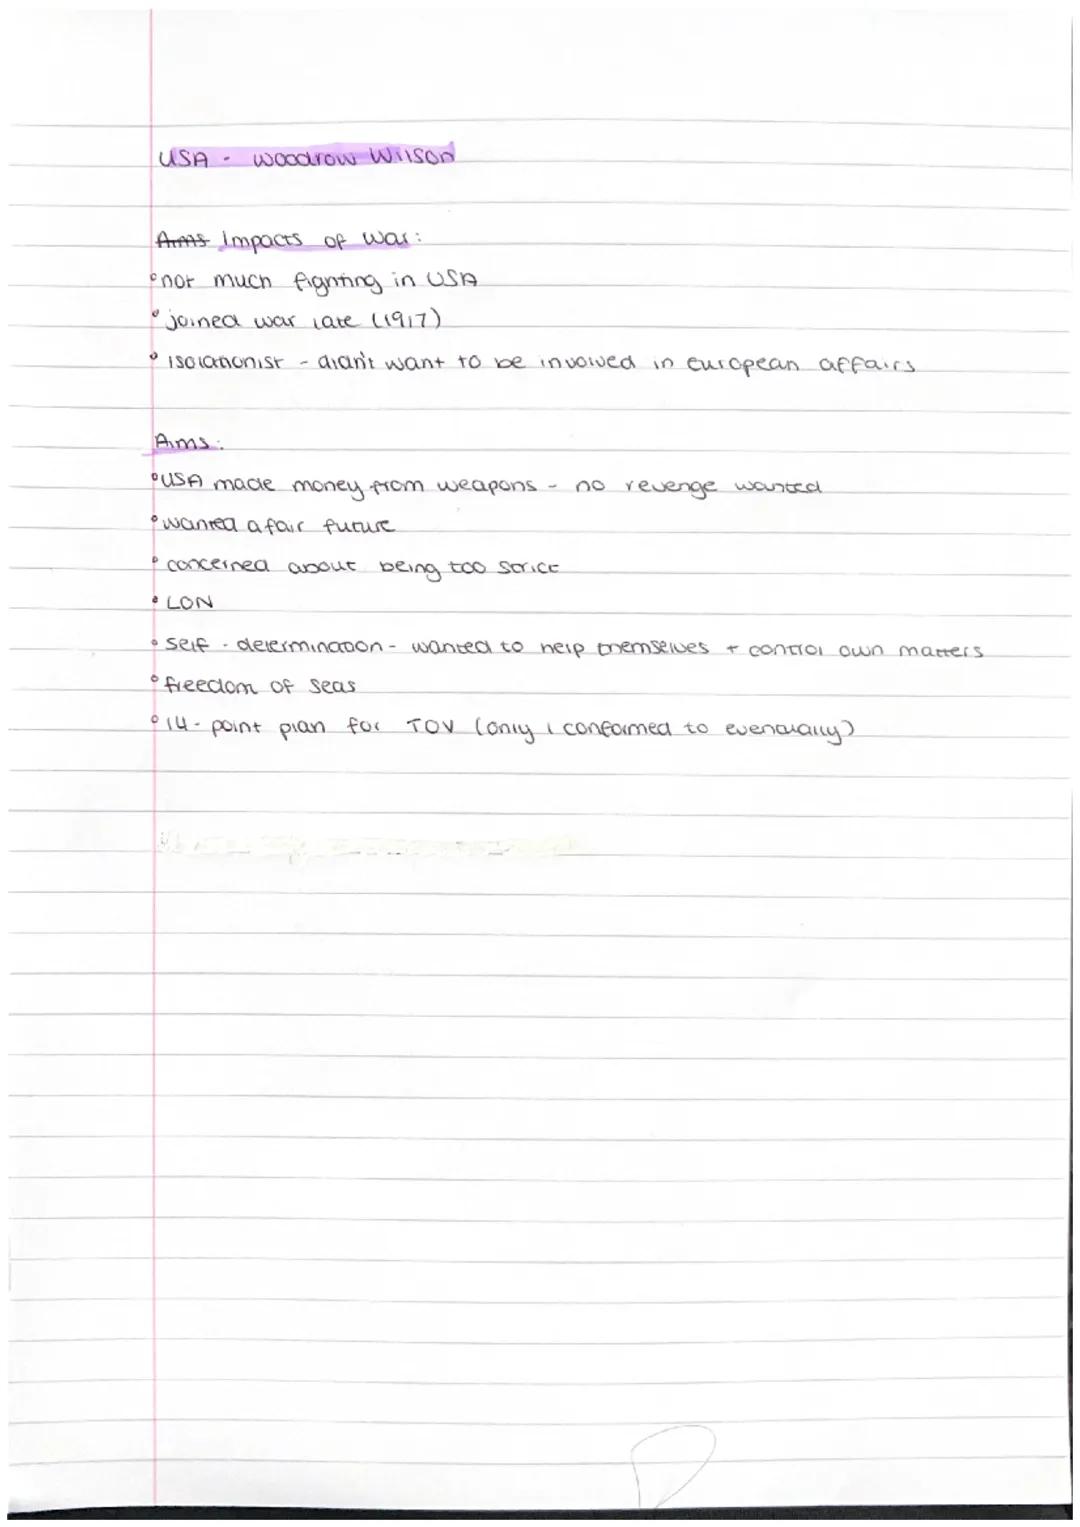 USA - Woodrow Wilson
Aims Impacts of war:
not much fighting in USA
joined war late (1917)
isolationist - didn't want to be involved in european affairs
Aims:
USA made money from weapons - no revenge wanted
wanted a fair future
concerned about being too strict
LON
self - determination - wanted to help themselves + control own matters
freedom of seas
14 - point plan for TOV (only 1 conformed to eventually)